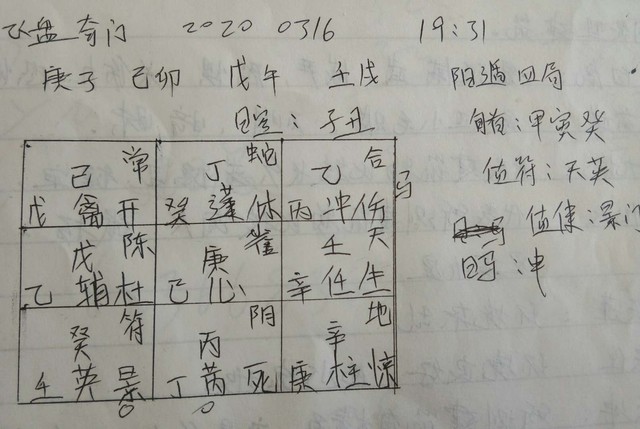 飞盘奇门 2020 0316 19:31
庚子 己卯 戊午 壬戌 阳遁四局
日空:子丑 旬首:甲寅癸
值符:天英
值使:景门
日马:冲
己 常 丁 蛇 乙 合 马
戊 禽 开 癸 蓬 休 丙 冲 伤
戊 陈 庚 雀 壬 天
乙 辅 杜 己 心 辛 任 生
癸 符 丙 阴 辛 地
壬 英 景 丁 芮 死 庚 柱 惊